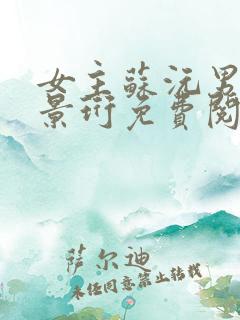 女主蘇沅男
景珩免費閱
萨尔迪
未经同意禁止转载